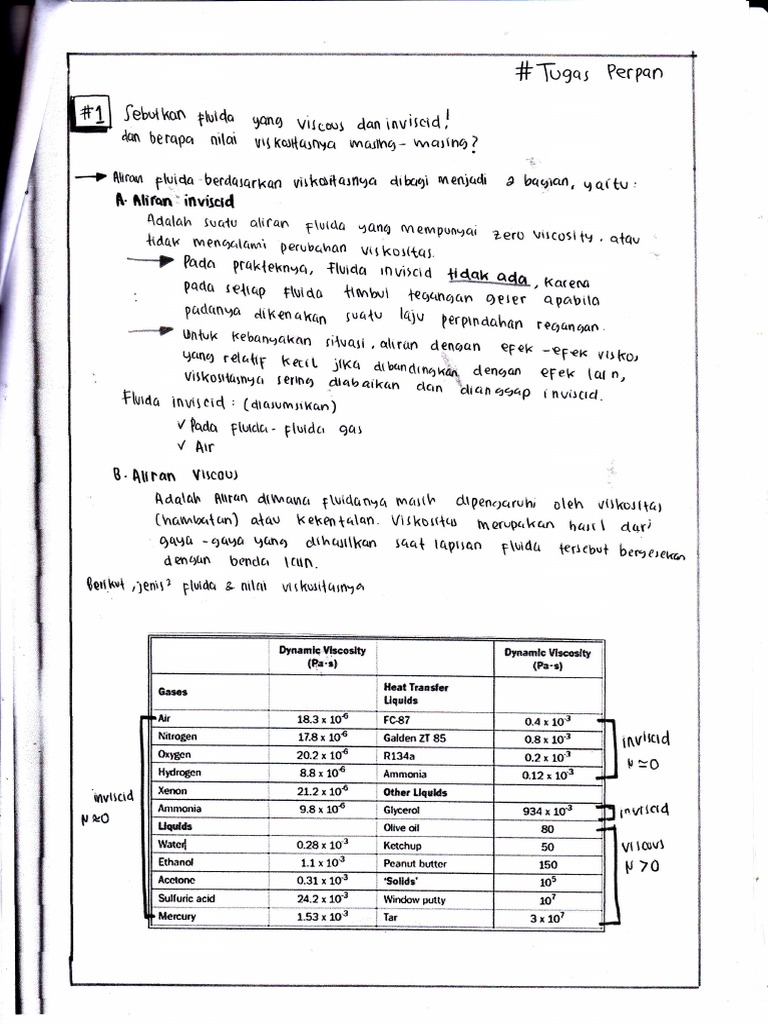 # Tugas Perpan
#1 Sebutkan fluida yang viscous dan inviscid!
dan berapa nilai viskositasnya masing-masing?
Aliran fluida berdasarkan viskositasnya dibagi menjadi 2 bagian, yaitu:
A. Aliran inviscid
Adalah suatu aliran fluida yang mempunyai zero viscosity. atau
tidak mengalami perubahan viskositas.
Pada prakteknya, fluida inviscid tidak ada, karena
pada setiap fluida timbul tegangan geser apabila
padanya dikenakan suatu laju perpindahan regangan.
Untuk kebanyakan situasi, aliran dengan efek-efek viskos
yang relatif kecil jika dibandingkan dengan efek lain,
viskositasnya sering diabaikan dan dianggap inviscid.
Fluida inviscid : (diasumsikan)
✓ Pada fluida-fluida gas
✓ Air
B. Aliran Viscous
Adalah Aliran dimana fluidanya masih dipengaruhi oleh viskositas
(hambatan) atau kekentalan. Viskositas merupakan hasil dari
gaya-gaya yang dihasilkan saat lapisan fluida tersebut bergesekan
dengan benda lain.
Berikut, jenis² fluida & nilai viskositasnya
Dynamic Viscosity (Pa·s) Dynamic Viscosity (Pa·s)
Gases Heat Transfer Liquids
Air 18.3 x 10-6 FC-87 0.4 x 10-3
Nitrogen 17.8 x 10-6 Galden ZT 85 0.8 x 10-3
Oxygen 20.2 x 10-6 R134a 0.2 x 10-3
Hydrogen 8.8 x 10-6 Ammonia 0.12 x 10-3
Xenon 21.2 x 10-6 Other Liquids
Ammonia 9.8 x 10-6 Glycerol 934 x 10-3
Liquids Olive oil 80
Water 0.28 x 10-3 Ketchup 50
Ethanol 1.1 x 10-3 Peanut butter 150
Acetone 0.31 x 10-3 'Solids' 10^5
Sulfuric acid 24.2 x 10-3 Window putty 10^7
Mercury 1.53 x 10-3 Tar 3 x 10^7
inviscid
μ≈0
inviscid
μ≃0
inviscid
viscous
μ>0